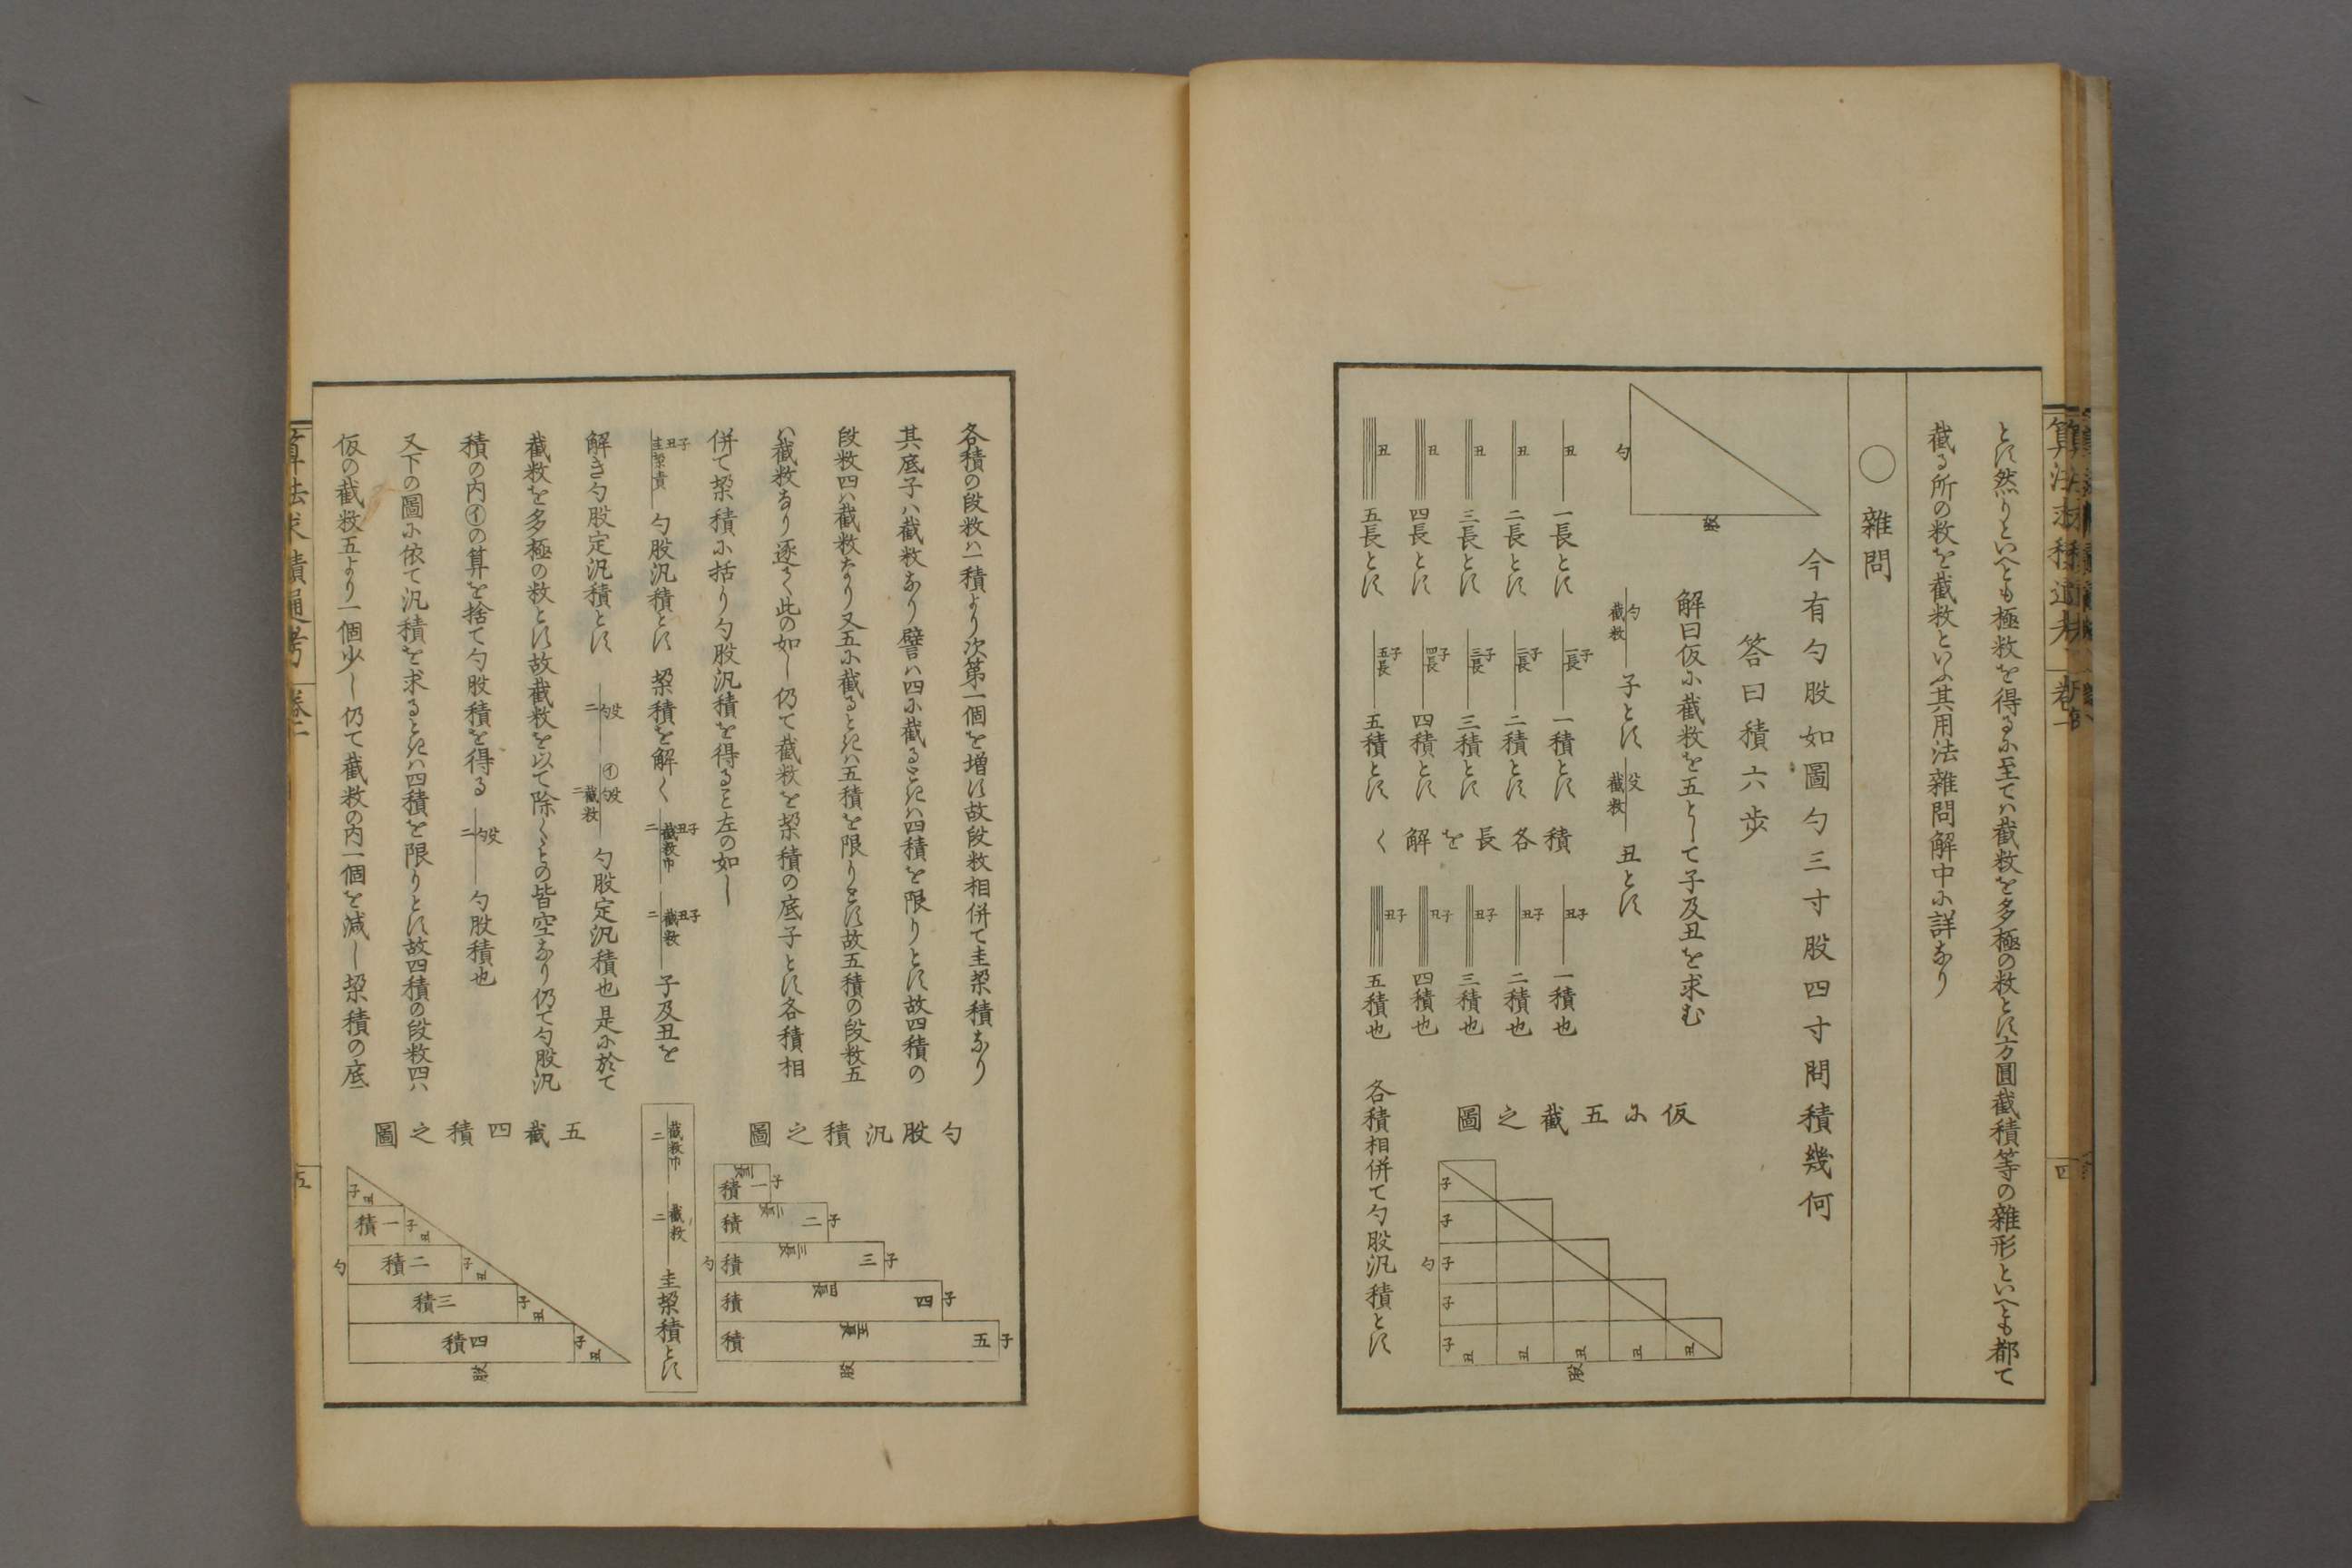 とは然りといへとも極数を得るに至てハ截数を多極の数とす方圓截積等の雜形といへとも都て
截る所の数を截数といふ其用法雜問解中に詳なり
〇 雜問
今有勾股如圖勾三寸股四寸問積幾何
答曰積六歩
解曰仮に截数を五として子及丑を求む
勾
股
截数 勾 子とす 截数 股 丑とす
丑 一長とす 子一長 一積とす
丑 二長とす 子二長 二積とす
丑 三長とす 子三長 三積とす
丑 四長とす 子四長 四積とす
丑 五長とす 子五長 五積とす
積各長を解く
子丑 一積也
子丑 二積也
子丑 三積也
子丑 四積也
子丑 五積也
各積相併て勾股汎積とす
仮に五截之圖
子
子
子
子
子
勾
丑 丑 丑 丑 丑
股
算法求積通考 巻一
四
各積の段数ハ一積より次第一個を増す故段数相併て圭梁積なり
其底子ハ截数なり譬ハ四に截るときハ四積を限りとす故四積の
段数四ハ截数なり又五に截るときハ五積を限りとす故五積の段数五
ハ截数なり逐て此の如し仍て截数を梁積の底子とす各積相
併て梁積に括り勾股汎積を得ること左の如し
子丑圭梁積 勾股汎積とす 梁積を解く 子丑截数巾二 子丑截数二 子及丑を
解き勾股定汎積とす 勾股二 ㋑勾股截数二 勾股定汎積也是に於て
截数を多極の数とす故截数を以て除くもの皆空なり仍て勾股汎
積の内㋑の算を捨て勾股積を得る 勾股二 勾股積也
又下の圖に依て汎積を求るときハ四積を限りとす故四積の段数四ハ
仮の截数五より一個少し仍て截数の内一個を減し梁積の底
勾股汎積之圖
一積 子
二積 子
三積 子
四積 子
五積 子
勾
股
截数巾二 截数二 圭梁積とす
五截四積之圖
子 丑
一積 子 丑
二積 子 丑
三積 子 丑
四積 子 丑
勾
股
算法求積通考 巻一
五